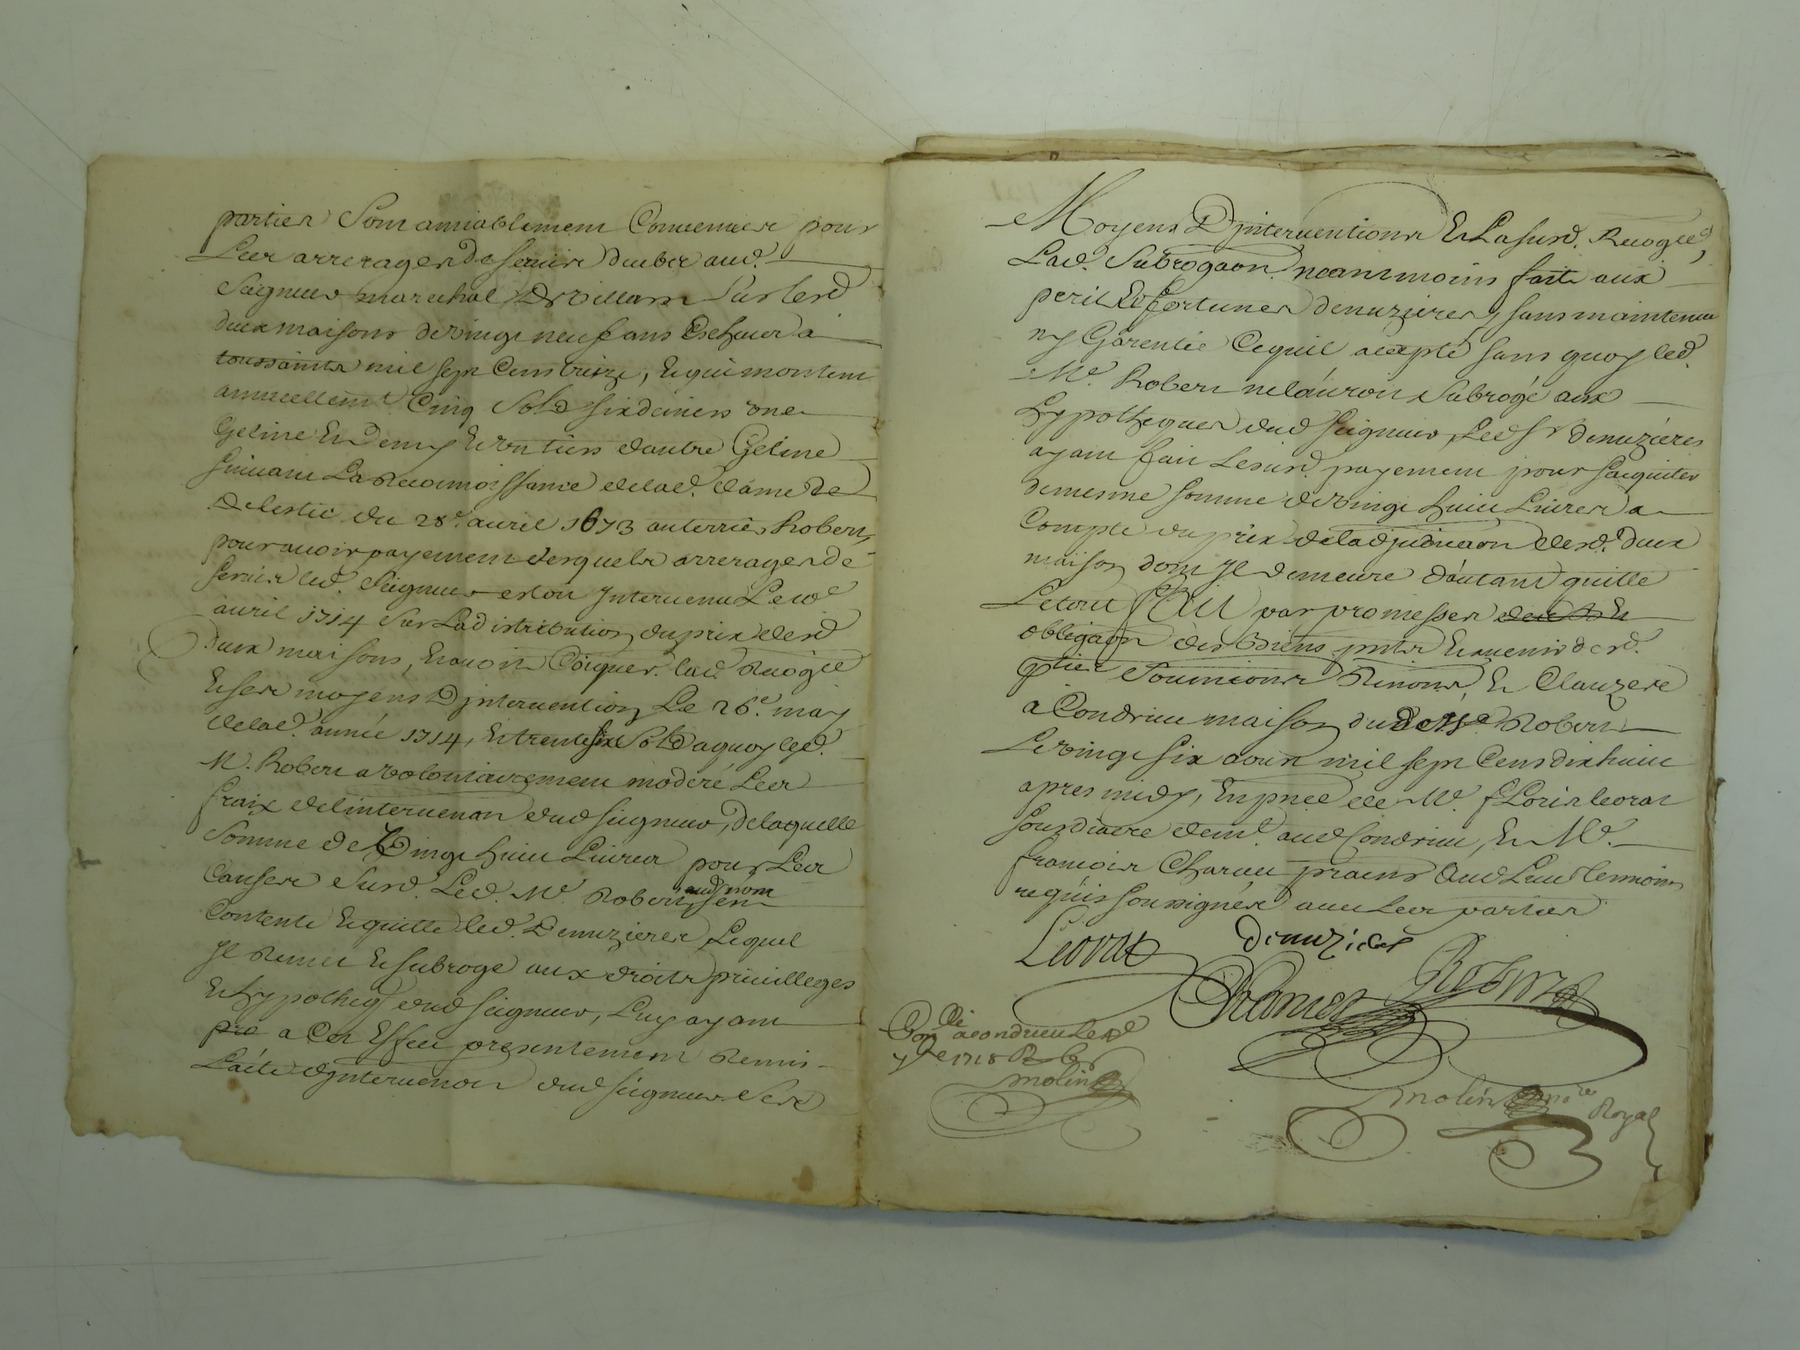 parties Sont amiablement Convenues pour
Les arrerages de servis deubz aud.
Seigneur marechal De Villars Sur lesd
deux maisons de vingt neuf ans Escheus a
toussaints mil sept Cens treize, Et qui montent
annuellemt Cinq Sols six deniers une
Geline Et Demy Et un tiers d'autre Geline
suivant La Reconnoissance de lad. dame De
du 28e. avril 1673 au terrier Robert,
pour avoir payement desquels arrerages de
servis led. Seigneur est intervenu Le
avril 1714 Sur La distribution du prix desd
deux maisons, Et avoit lad.
Et ses moyens D'jntervention Le 26e. may
de lad. année 1714, Et trente six Sols a quoy led.
Me. Robert a volontairement moderé Les
fraix de l'intervenon dud seigneur, De laquelle
Somme de Vingt huit Livres pour Les
Causes Susd. Led. Me Robert aud nom s'en
Contente Et quitte led. Denuzieres, Lequel
Jl Remet Et subroge aux droits privilleges
Et hypotheq dud seigneur, Luy ayant
pre a Cet Effet presentement Remis
L'acte d'jntervenon dud seigneur Sesd
Moyens D'jnterventions Et La susd.
Lad. Subrogaon neantmoins faite aux
peril Et fortunes denuzieres, sans maintenue
ny Garentie Ce qu'il accepte sans quoy led.
Me. Robert ne l'auroit Subrogé aux
hypotheques dud seigneur, Led sr denuzieres
ayant fait Le susd. payement pour s'aquiter
de mesme somme de vingt huit Livres a
Compte du prix de l'adjudicaon desd. deux
maisons dont Jl demeure d'autant quitte
Le tout par promesses Et
obligaon des biens pnts Et avenir desd.
pties Soumissions Renons, Et Clauzes
a Condrieu maison dud Me Robert
Le vingt six aoust mil sept Cens dix huit
apres midy, En pnce de Me. fLoris Leorat
dud Condrieu, Et Me.
francois Charvet aud Lieu temoins
requis soussignés avec Les parties
Leorat
Denuzieres
Robert
Collé a Condrieu Le
7bre 1718 R
molin
molin nore Royal